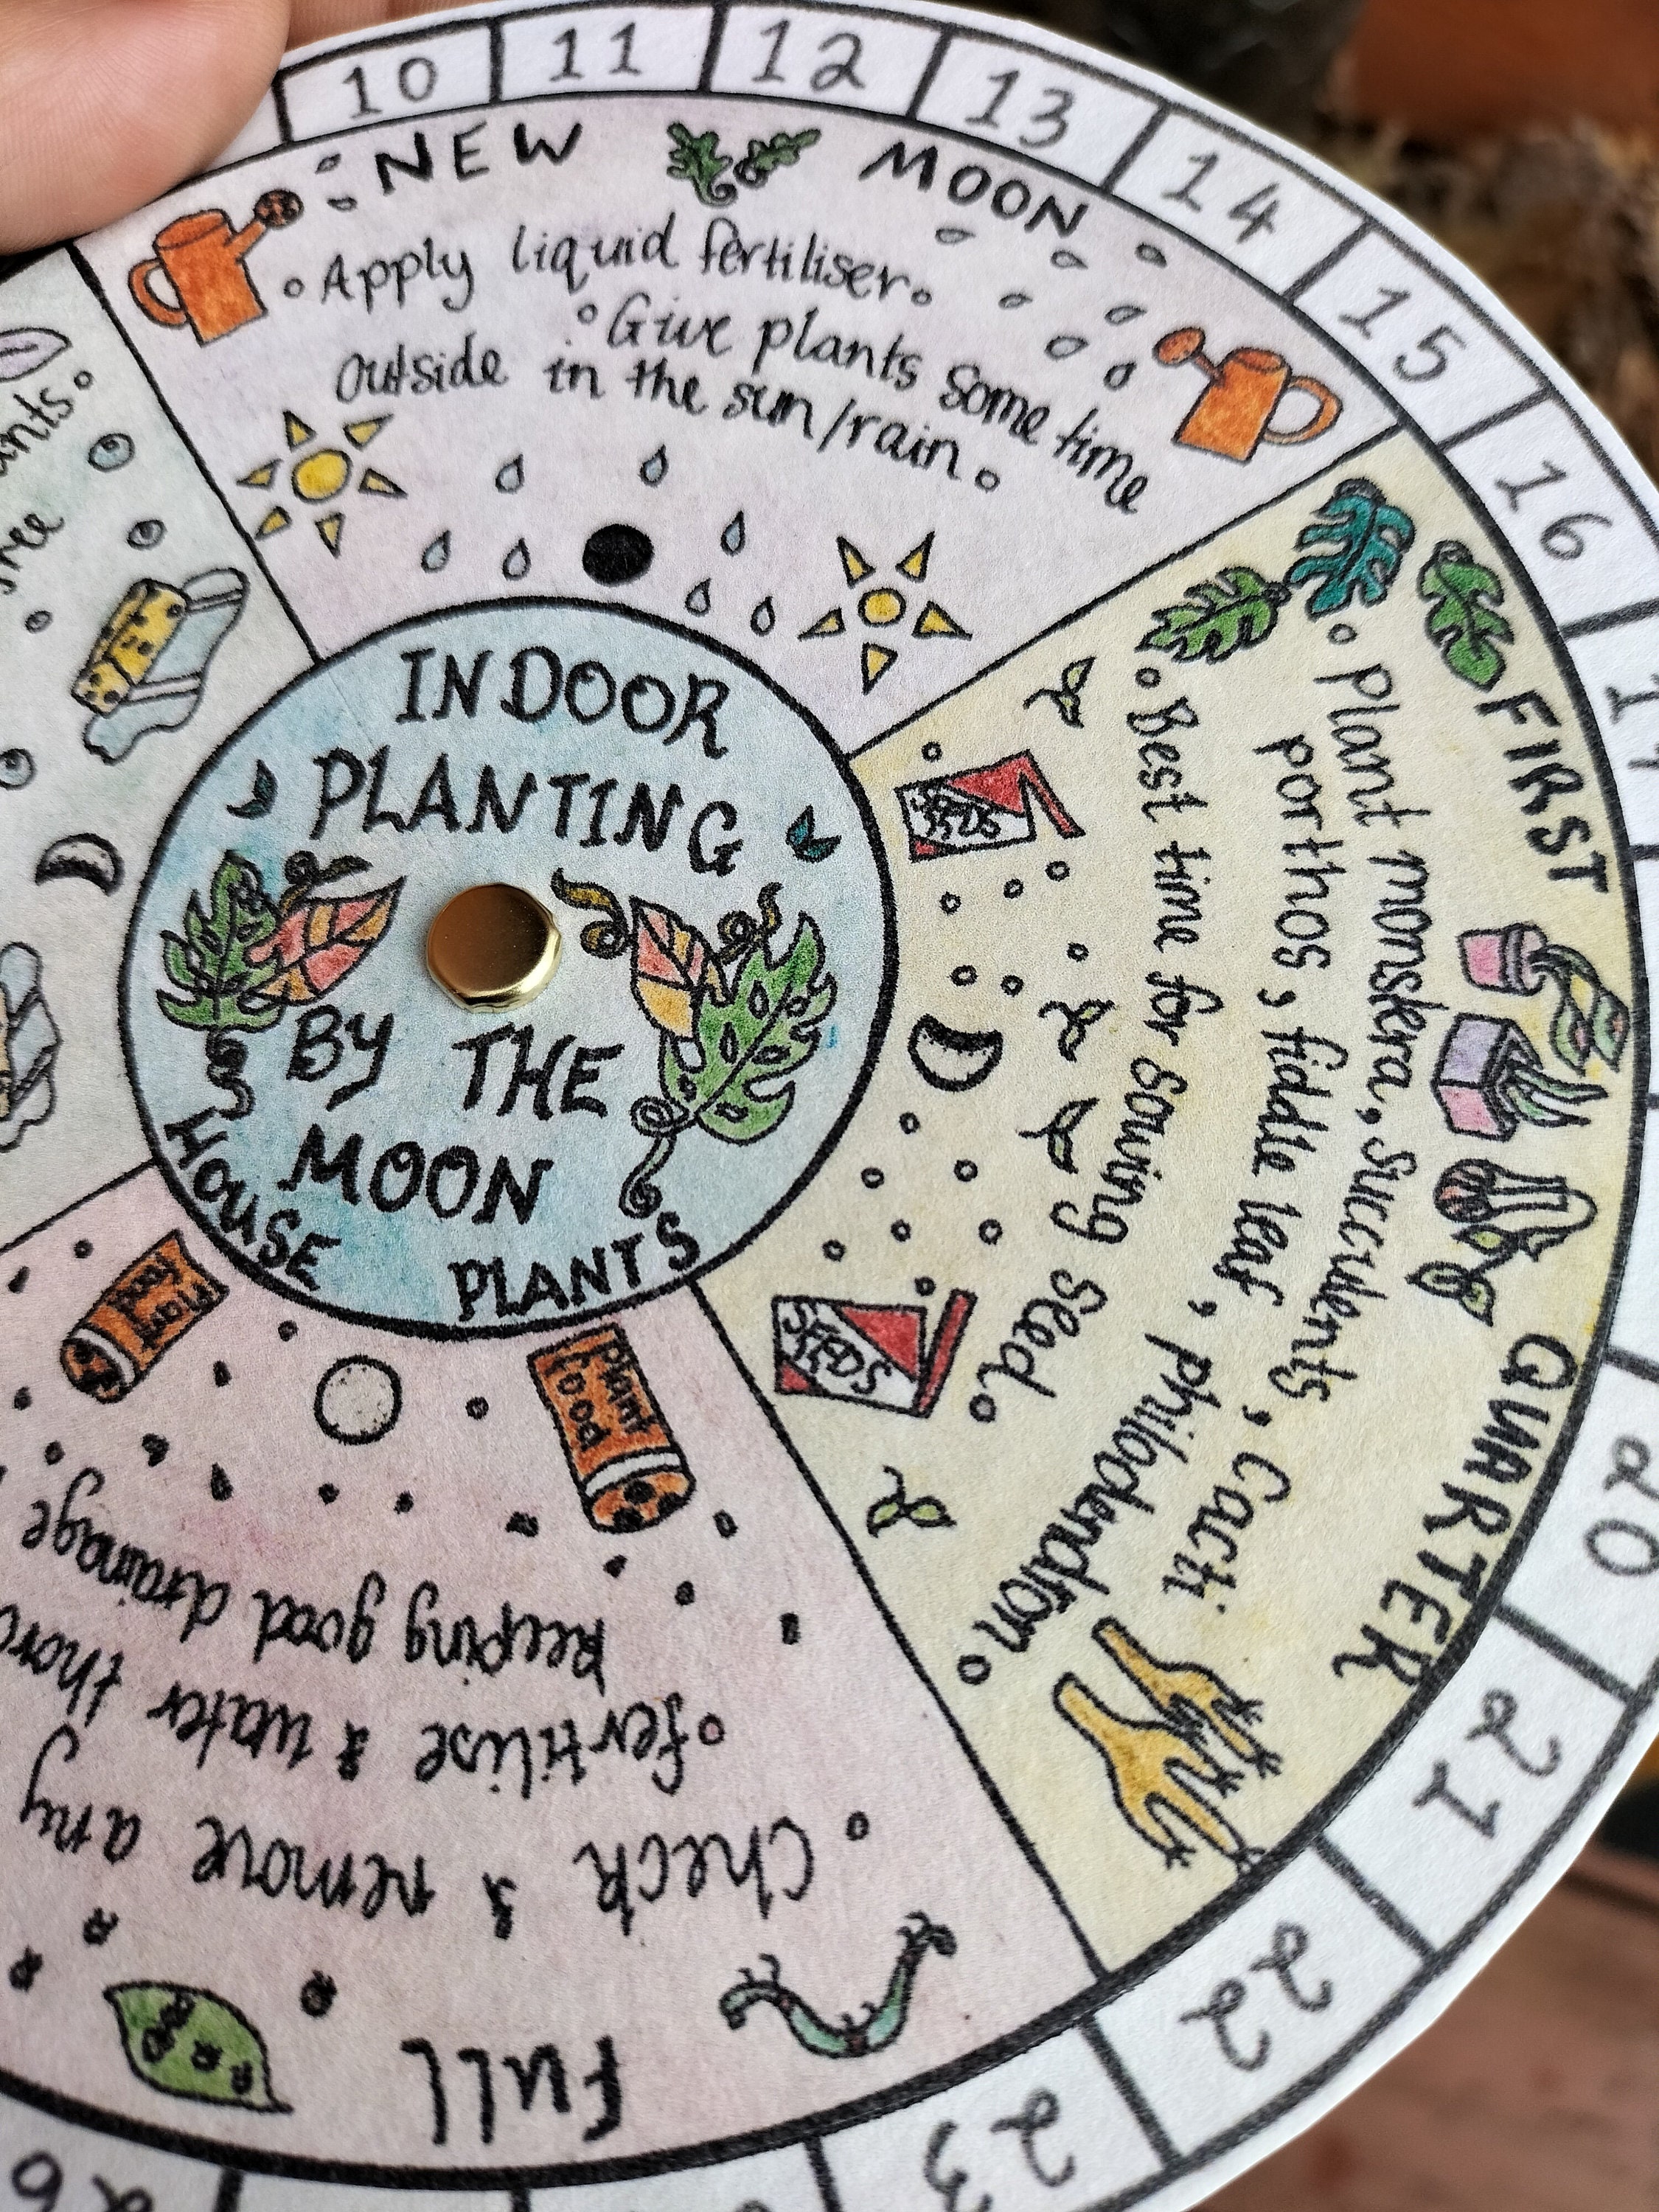 10
11
12
13
14
15
16
17
20
21
22
23
26
NEW MOON
° Apply liquid fertiliser.
° Give plants some time
outside in the sun/rain.
FIRST QUARTER
° Plant monskra, Succulents, Cacti
porthos, fiddle leaf, philodendron.
° Best time for sowing Seed.
SEEDS
SEEDS
FULL
° Check & remove any
° fertilise & water
keeping good drainage
plant food
plant food
INDOOR
PLANTING
BY THE
MOON
HOUSE PLANTS